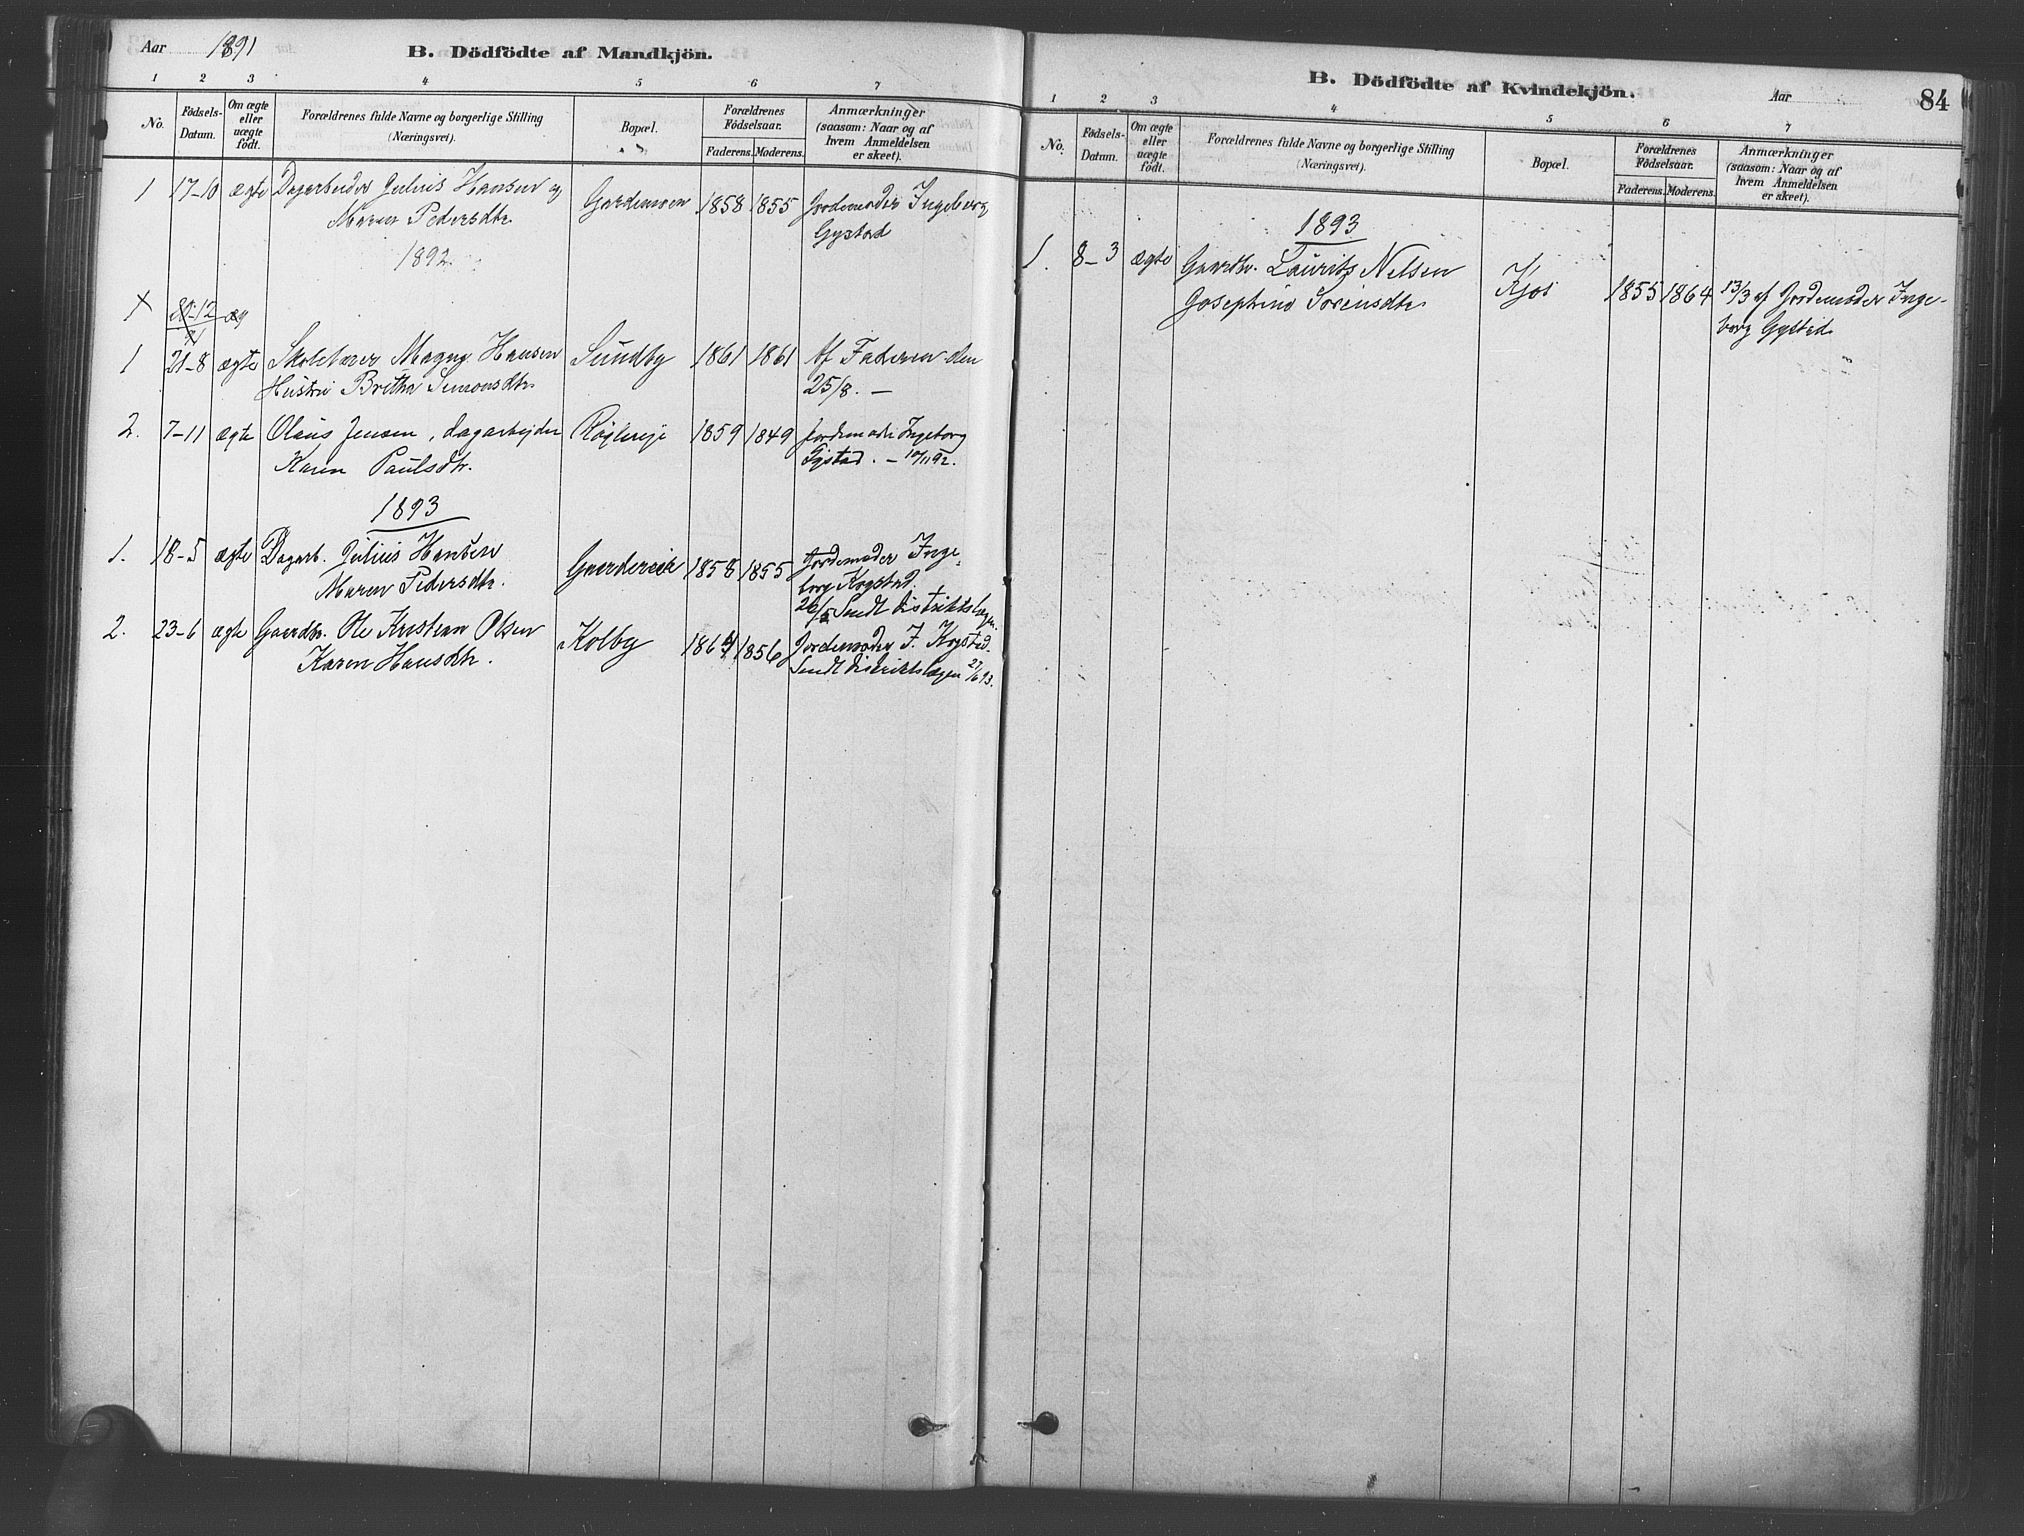 Aar 1891
B. Dödfödte af Mandkjön.
1 2 3 4 5 6 7
No.
Födsels-Datum.
Om ægte eller uægte födt.
Forældrenes fulde Navne og borgerlige Stilling
(Næringsvei).
Bopæl.
Forældrenes Födselsaar.
Faderens. Moderens.
Anmærkninger
(saasom: Naar og af
hvem Anmeldelsen
er skeet).
1 17-10 ægte Dagarbeider Julius Hansen og Gardermoen 1858 1855 Jordemoder Ingeborg
Maren Pedersdtr. Gystad
1892
21-8 ægte Skolelærer Hansen Sundby 1861 1861 Af Faderen den
Hustru Britha Simonsdtr. 25/8. —
2. 7-11 ægte Olaus Jensen, dagarbejder 1859 1849 Jordemoder Ingeborg
Karen Paulsdtr. Gystad. – 10/11 92.
1893
1. 18-5 ægte Dagarb. Julius Hansen 1858 1855 Jordemoder Inge-
Maren Pedersdtr. borg Kogstad.
Sendt distriktslægen.
2. 23-6 ægte Gaardbr. Ole Kristian Olsen Kolby 1864 1856 Jordemoder I. Kogstad.
Karen Hansdtr. Sendt distriktslægen 27/6 93.
B. Dödfödte af Kvindekjön.
Aar
84
1 2 3 4 5 6 7
No.
Födsels-Datum.
Om ægte eller uægte födt.
Forældrenes fulde Navne og borgerlige Stilling
(Næringsvei).
Bopæl.
Forældrenes Födselsaar.
Faderens. Moderens.
Anmærkninger
(saasom: Naar og af
hvem Anmeldelsen
er skeet).
1893
1. 8-3 ægte Gaardbr. Laurits Nelsen Kjos 1855 1864 13/3 af Jordemoder Inge-
Josephine Sorensdtr. borg Gystad